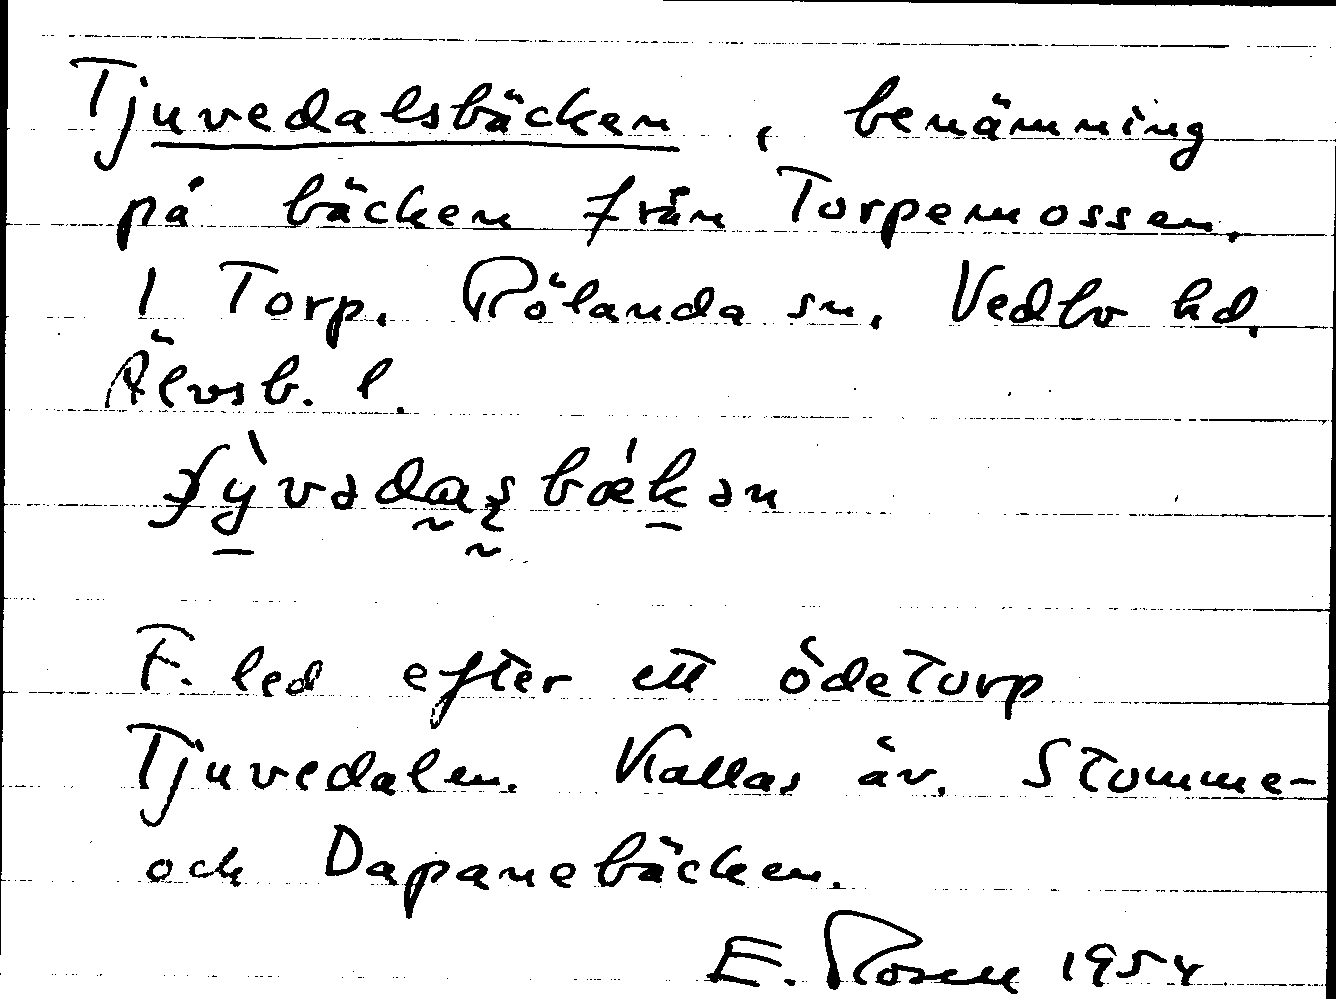 Tjuvedalsbäcken, benämning
på bäcken från Torpemossen.
I Torp. Rölanda sn. Vedbo hd.
Älvsb. l.
F. led efter ett ödetorp
Tjuvedalen. Kallas äv. Stomme-
och Dapanebäcken.
E. Rosell 1954